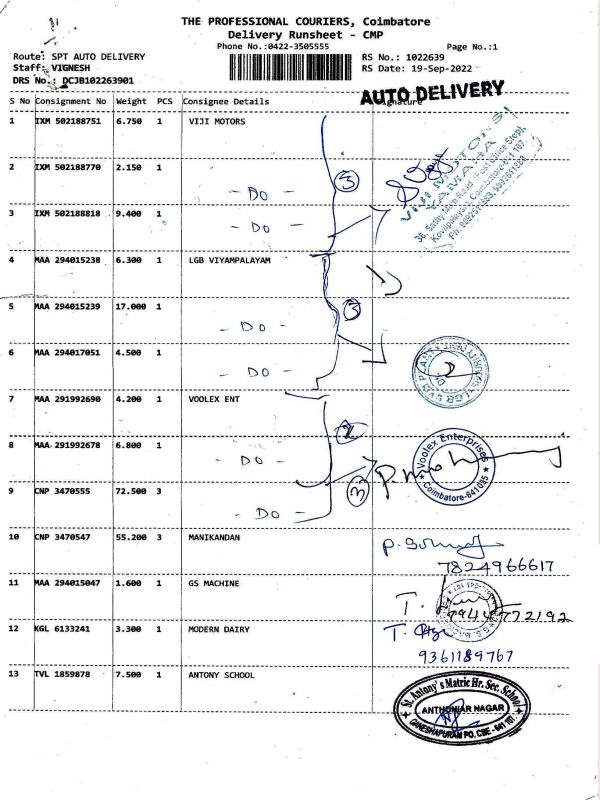 THE PROFESSIONAL COURIERS, Coimbatore
Delivery Runsheet - CMP
Phone No.:0422-3505555 Page No.:1
Route: SPT AUTO DELIVERY RS No.: 1022639
Staff: VIGNESH RS Date: 19-Sep-2022
DRS No.: DCJB102263901
AUTO DELIVERY
S No Consignment No Weight PCS Consignee Details Signature
1 IXM 502188751 6.750 1 VIJI MOTORS
2 IXM 502188770 2.150 1 - DO -
3 IXM 502188818 9.400 1 - DO -
3
VIJI MOTORS
YAMAHA
4 MAA 294015238 6.300 1 LGB VIYAMPALAYAM
5 MAA 294015239 17.000 1 - DO -
3
6 MAA 294017051 4.500 1 - DO -
7 MAA 291992690 4.200 1 VOOLEX ENT
8 MAA 291992678 6.800 1 - DO -
Voolex Enterprises
Coimbatore-641035
9 CNP 3470555 72.500 3 - DO -
3
10 CNP 3470547 55.200 3 MANIKANDAN
7824966617
11 MAA 294015047 1.600 1 GS MACHINE
12 KGL 6133241 3.300 1 MODERN DAIRY
9361189767
13 TVL 1859878 7.500 1 ANTONY SCHOOL
St. Antony's Matric Hr. Sec. School
ANTHONIAR NAGAR
GANESHAPURAM PO, CBE - 641 107.